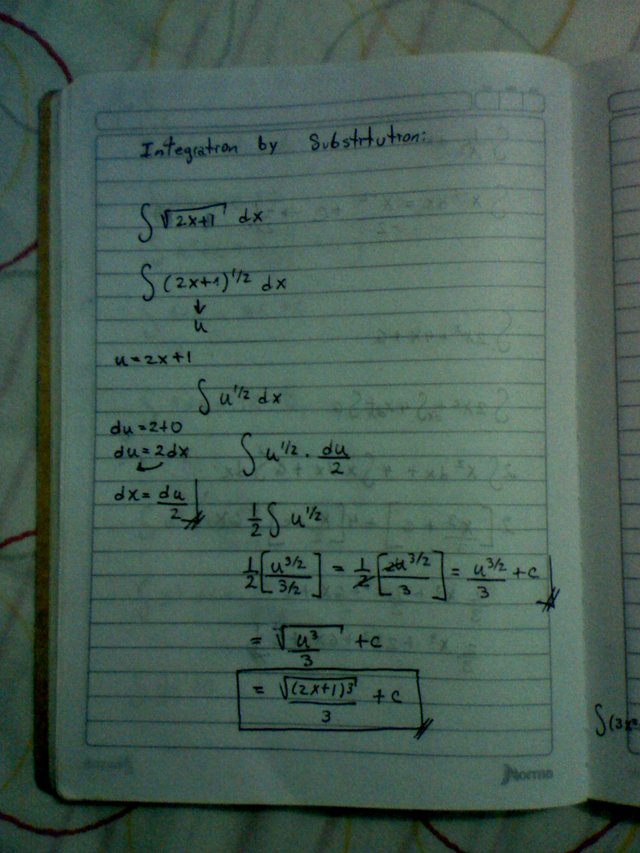 Integration by Substitution:
∫ √(2x+1) dx
∫ (2x+1)^1/2 dx
↓
u
u = 2x+1
∫ u^1/2 dx
du = 2+0
du = 2dx
∫ u^1/2 · du/2
dx = du/2
1/2 ∫ u^1/2
1/2 [u^3/2 / 3/2] = 1/2 [2u^3/2 / 3] = u^3/2 / 3 + c
= √u^3 / 3 + c
= √(2x+1)^3 / 3 + c
Norma
∫(3x